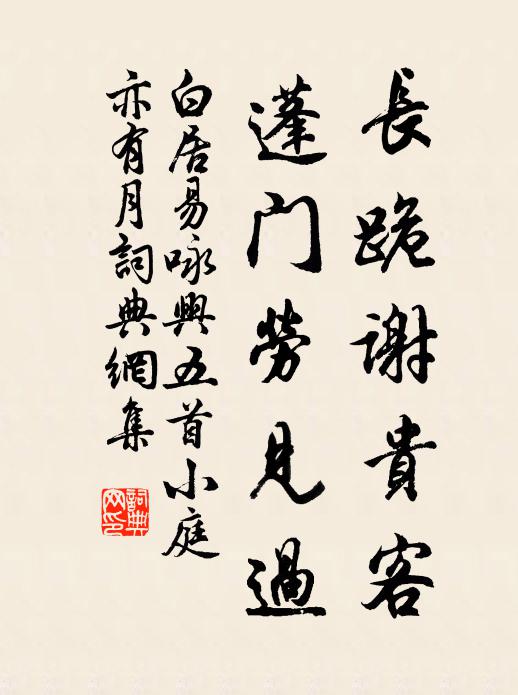 長跪謝貴客
蓬門勞見過
白居易咏興五首小庭
亦有月詞典網集
詞典
网印